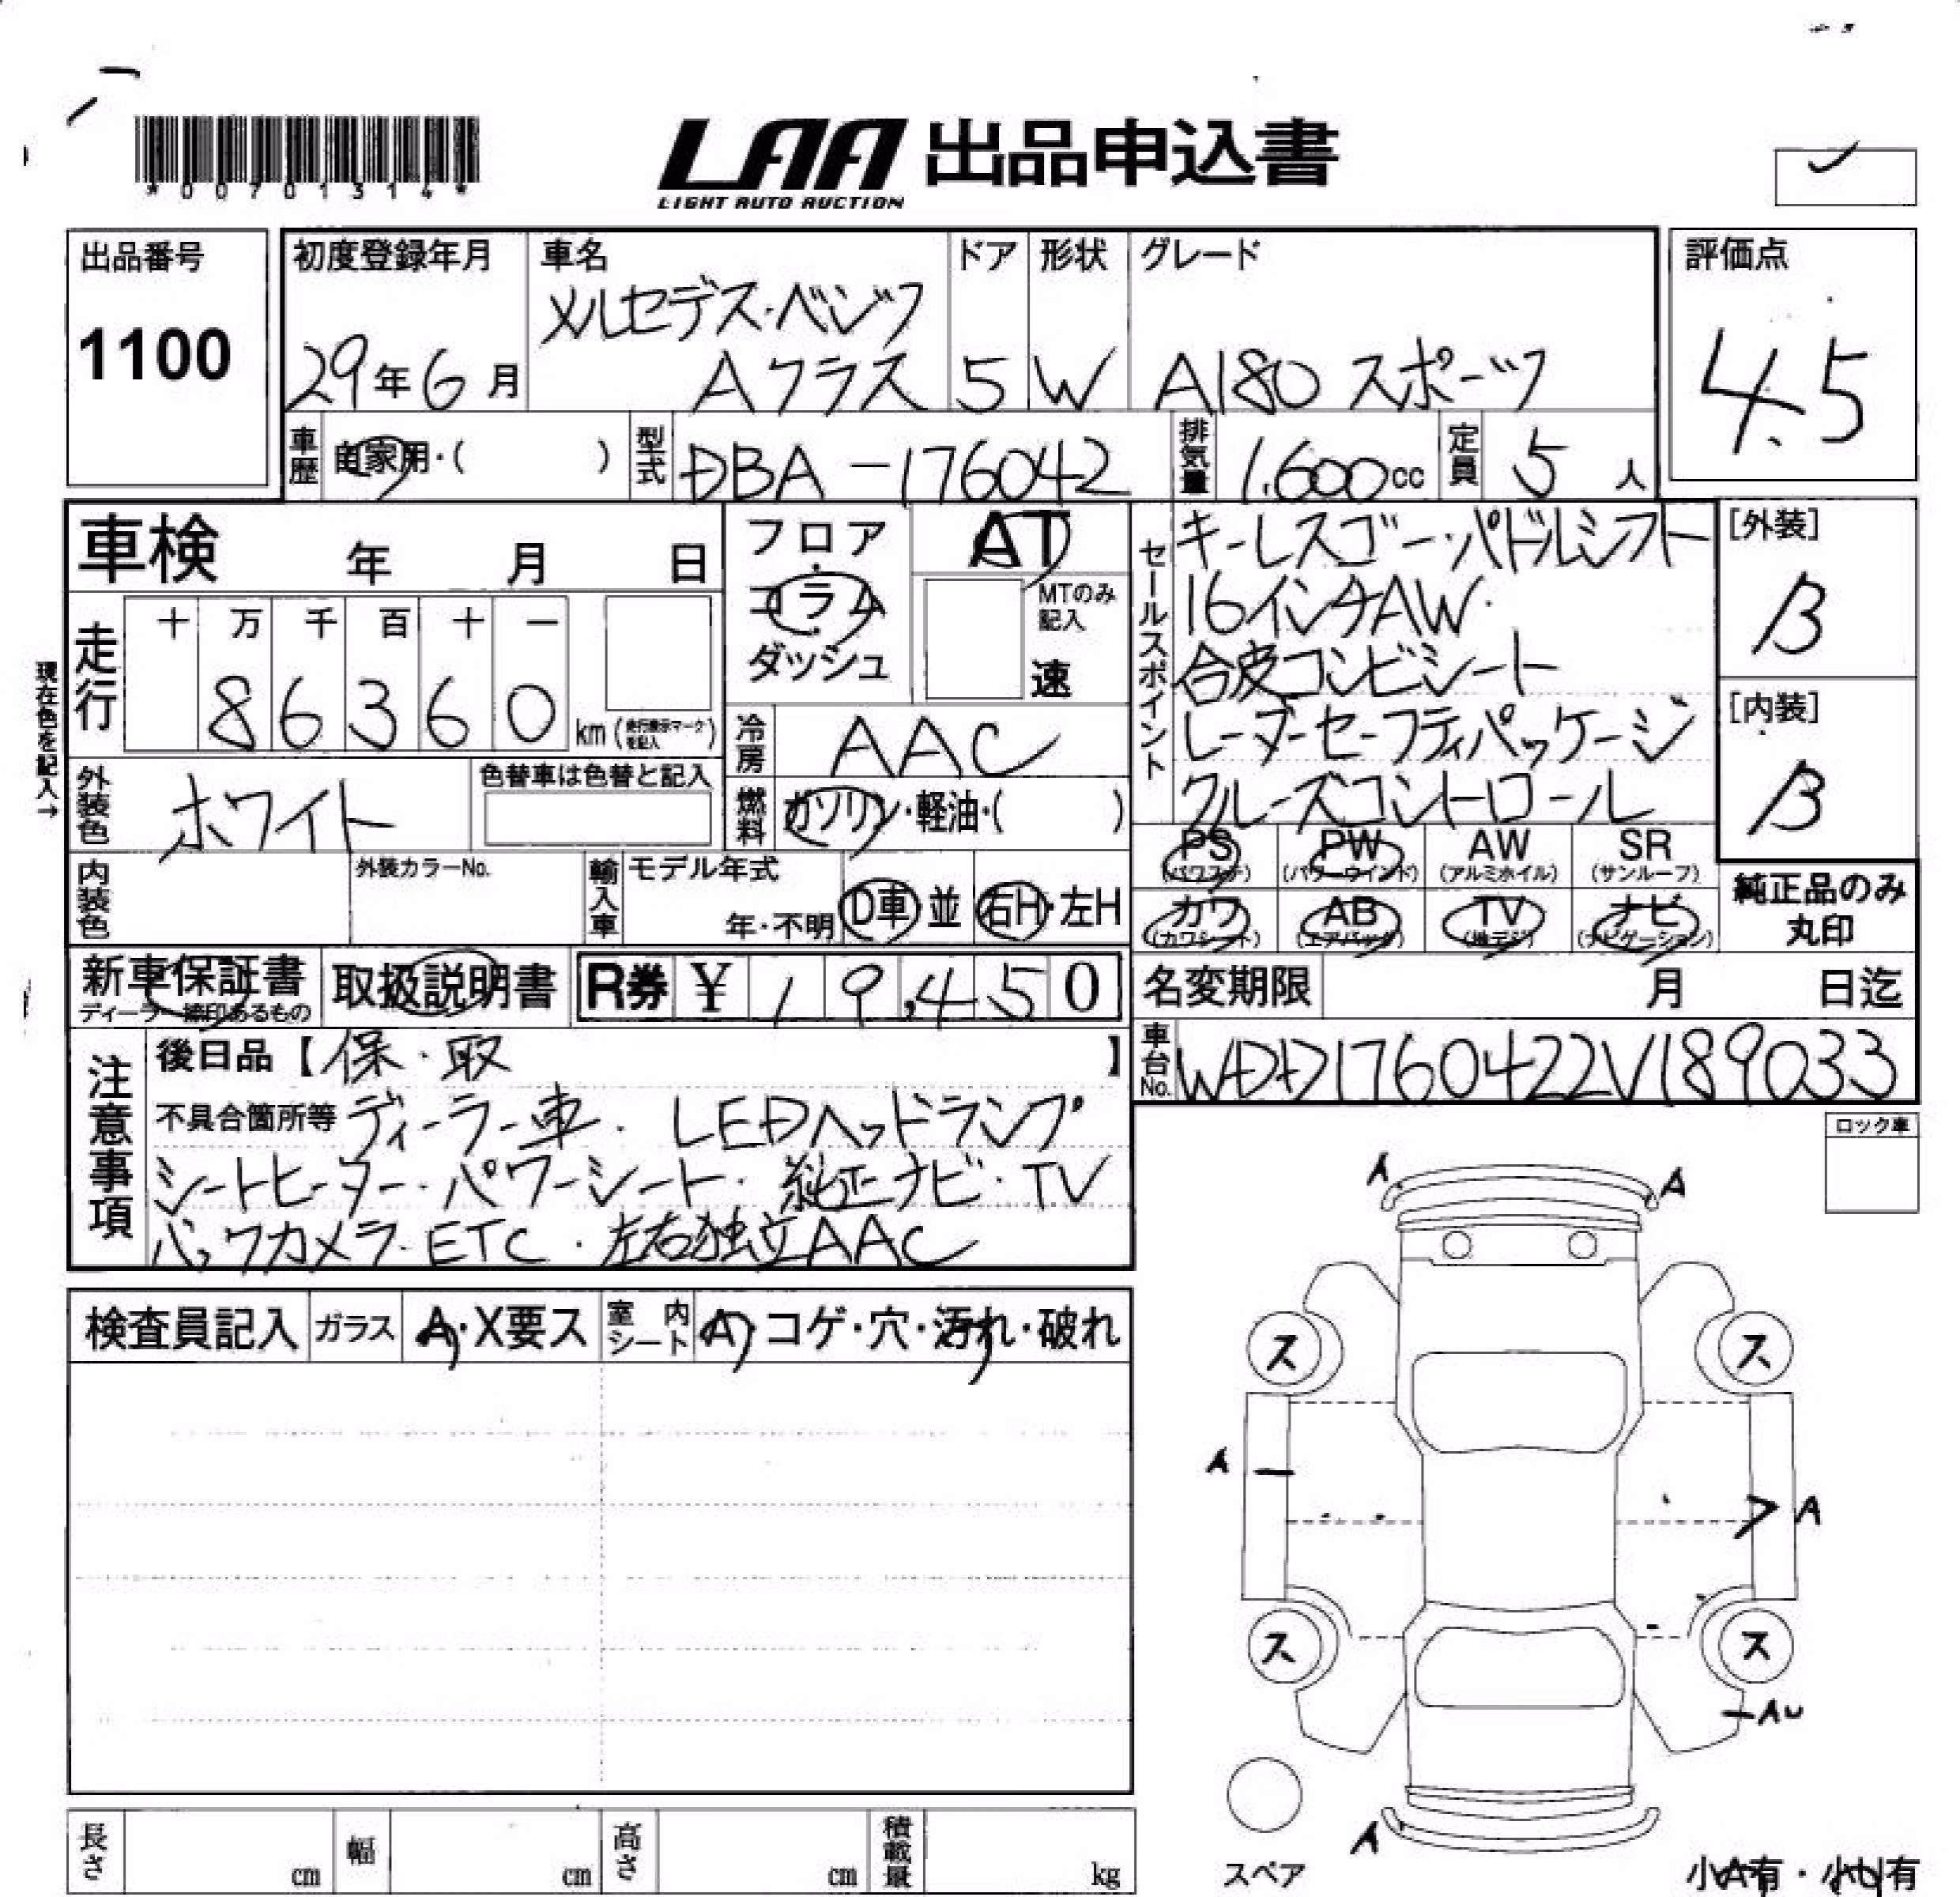 *00701314*
LAA 出品申込書
LIGHT AUTO AUCTION
出品番号
1100
初度登録年月
29年6月
車名
メルセデス・ベンツ
Aクラス
ドア
5
形状
W
グレード
A180 スポーツ
評価点
4.5
車歴
自家用・( )
型式
DBA-176042
排気量
1,600cc
定員
5人
車検 年 月 日
走行
十 万 千 百 十 一
86360
km(走行表示マークを記入)
現在色を記入→
フロア
・
コラム
・
ダッシュ
AT
MTのみ
記入
速
冷房
AAC
燃料
ガソリン・軽油・( )
セールスポイント
キーレスゴー・パドルシフト
16インチAW・
合皮コンビシート
レーダーセーフティパッケージ
クルーズコントロール
[外装]
B
[内装]
B
外装色
ホワイト
色替車は色替と記入
内装色
外装カラーNo.
輸入車
モデル年式
年・不明
D車・並
右H・左H
PS
(パワステ)
PW
(パワーウインド)
AW
(アルミホイル)
SR
(サンルーフ)
カワ
(カワシート)
AB
(エアバック)
TV
(地デジ)
ナビ
(ナビゲーション)
純正品のみ
丸印
新車保証書
ディーラー捺印あるもの
取扱説明書
R券 ¥19,450
名変期限 月 日迄
車台No.
WDD1760422V189033
注意事項
後日品【保・取 】
不具合箇所等 ディーラー車・LEDヘッドランプ
シートヒーター・パワーシート・純正ナビ・TV
バックカメラ・ETC・左右独立AAC
ロック車
検査員記入
ガラス
A・X要ス
室内シート
A・コゲ・穴・汚れ・破れ
A A
ス ス
A A
ス ス
AU
A
スペア
小A有・小U有
長さ cm
幅 cm
高さ cm
積載量 kg